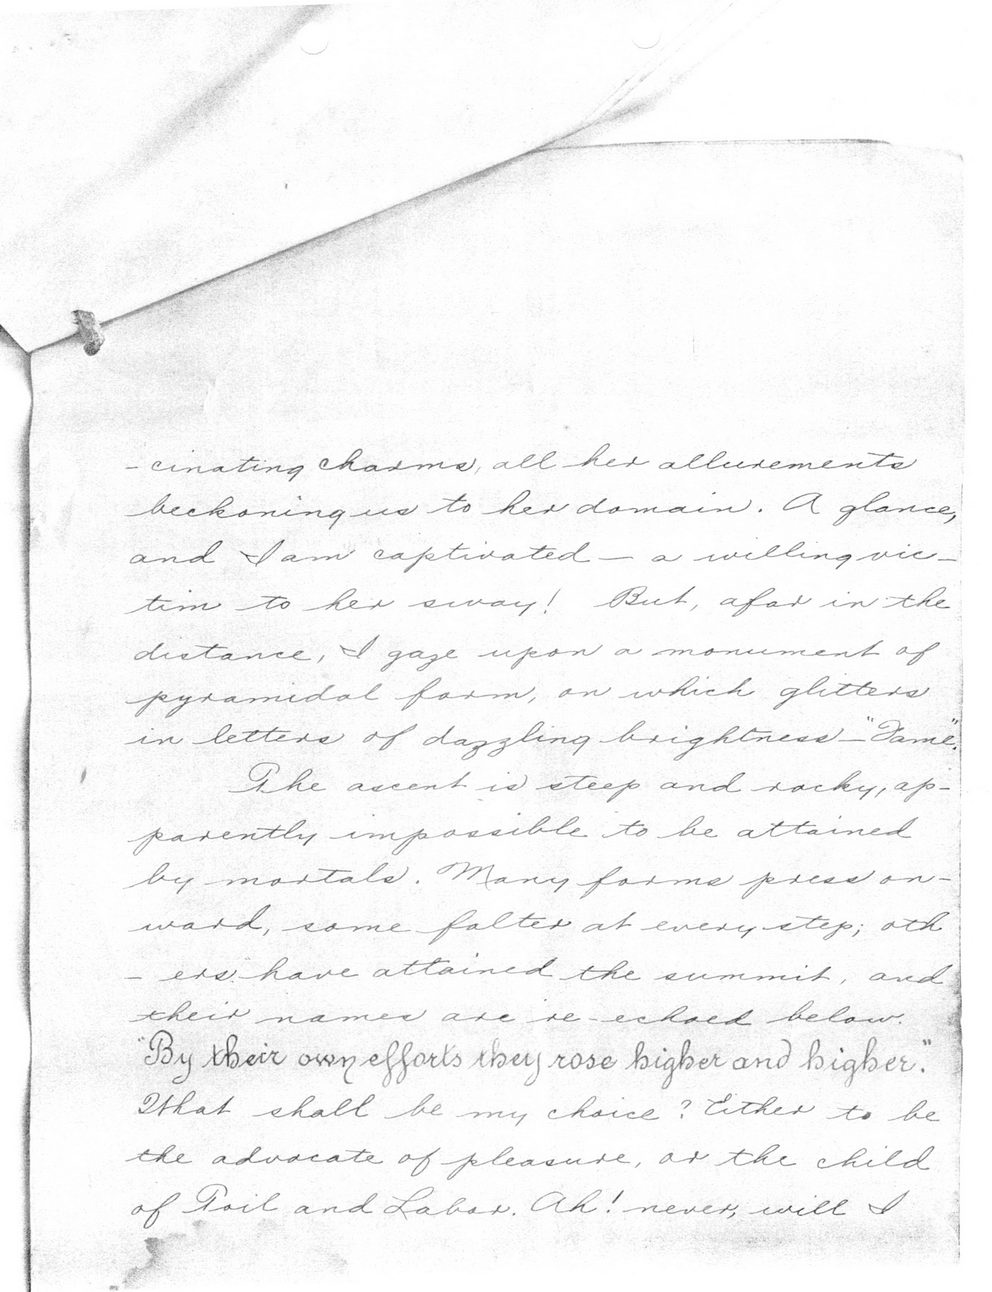 - cinating charms, all her allurements
beckoning us to her domain. A glance,
and I am captivated - a willing vic-
tim to her sway! But, afar in the
distance, I gaze upon a monument of
pyramidal form, on which glitters
in letters of dazzling brightness - "Fame".
The ascent is steep and rocky, ap-
parently impossible to be attained
by mortals. Many forms press on-
ward, some falter at every step; oth
- ers have attained the summit, and
their names are re-echoed below.
"By their own efforts they rose higher and higher."
What shall be my choice? Either to be
the advocate of pleasure, or the child
of Toil and Labor. Ah! never, will I